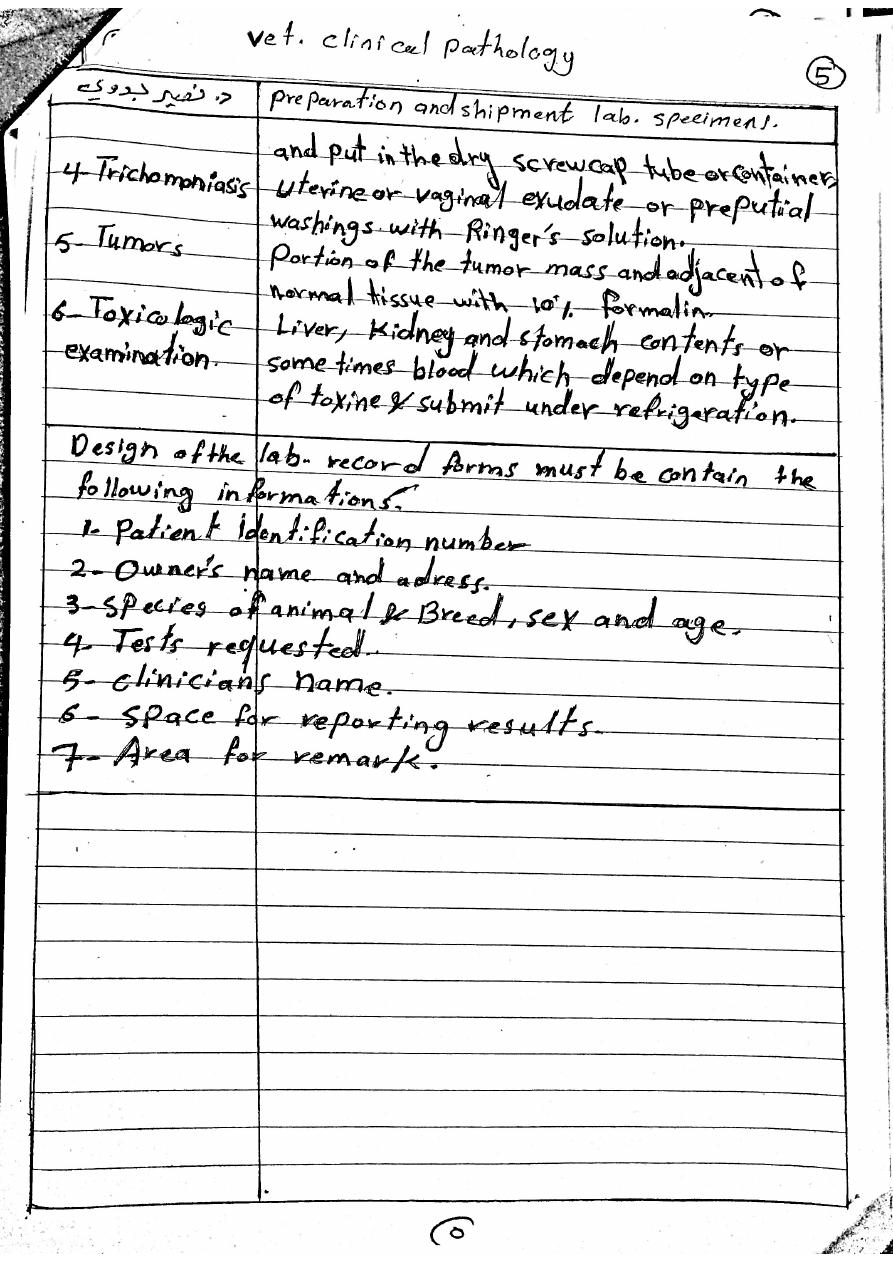 vet. clinical pathology
5
د. نصير بدوي
preparation and shipment lab. specimens.
and put in the dry screwcap tube or container,
4- Trichomoniasis
uterine or vaginal exudate or preputial
washings with Ringer's solution.
5- Tumors
Portion of the tumor mass and adjacent of
normal tissue with 10% formalin.
6- Toxicologic
Liver, kidney and stomach contents or
examination.
some times blood which depend on type
of toxine & submit under refrigeration.
Design of the lab. record forms must be contain the
following informations.
1- Patient identification number
2- Owner's name and adress.
3- Species of animal & Breed, sex and age.
4- Tests requested.
5- clinicians name.
6- space for reporting results.
7- Area for remark.
٥